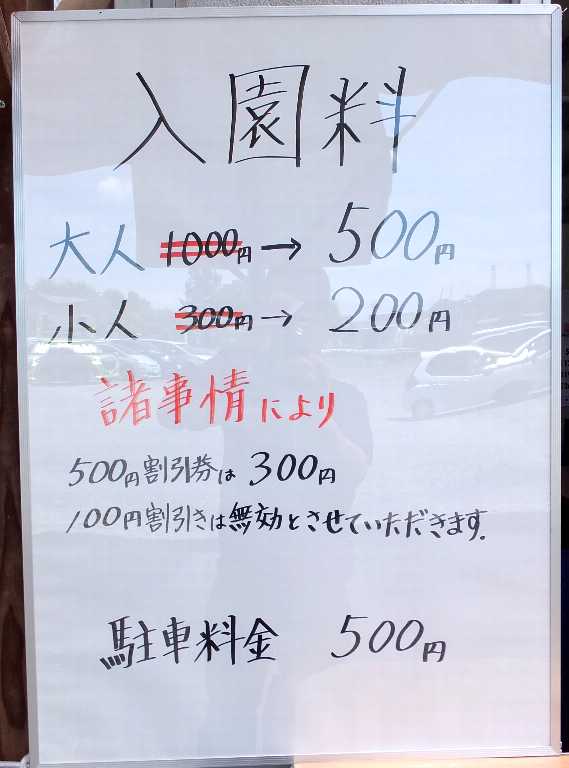 入園料
大人 1000円→500円
小人 300円→200円
諸事情により
500円割引券は300円
100円割引きは無効とさせていただきます.
駐車料金 500円